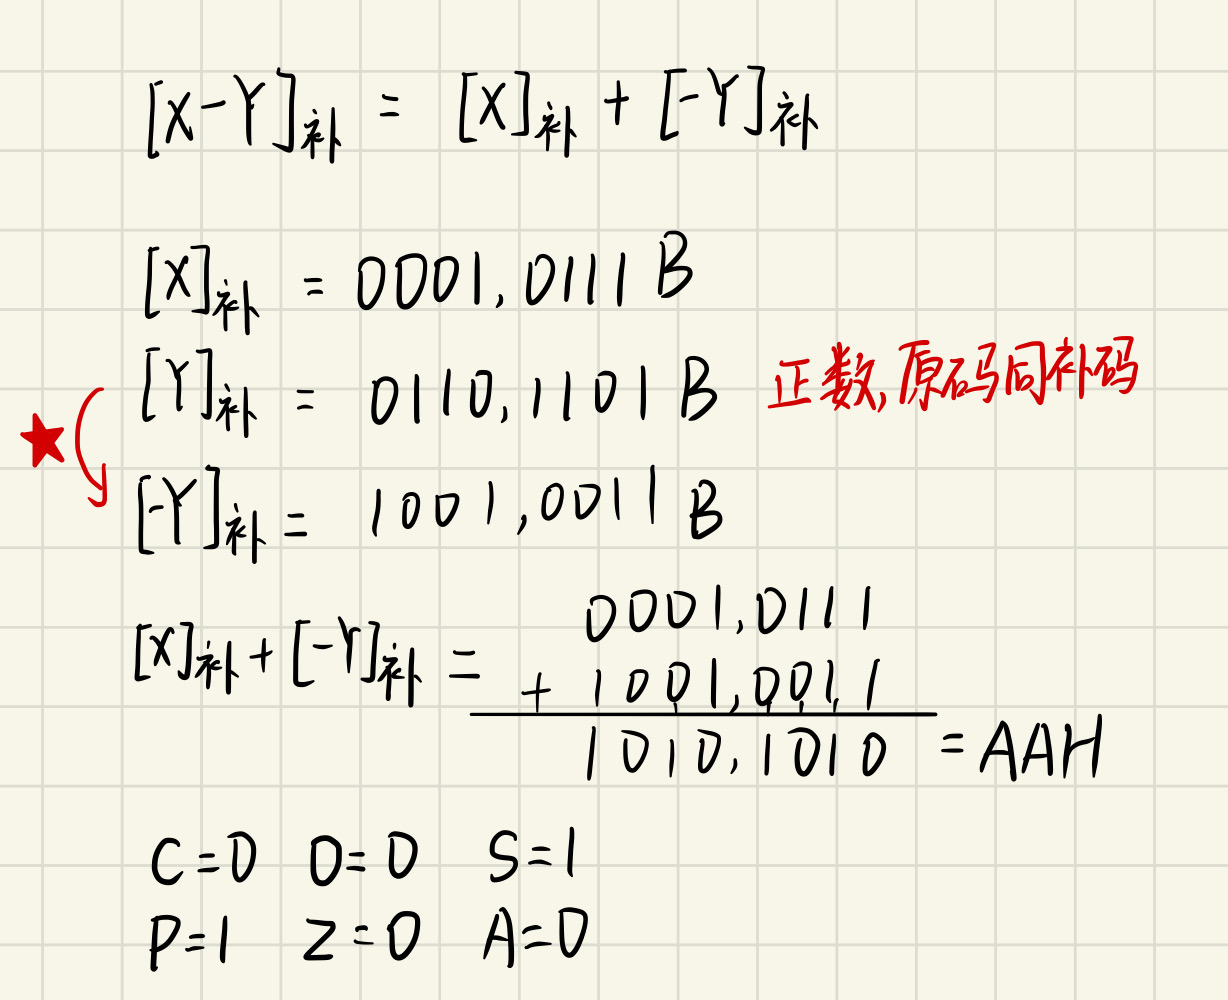 [X-Y]补 = [X]补 + [-Y]补
[X]补 = 0001,0111 B
[Y]补 = 0110,1101 B 正数,原码同补码
[-Y]补 = 1001,0011 B
0001,0111
[X]补 + [-Y]补 = + 1001,0011
1010,1010 = AAH
C=0 O=0 S=1
P=1 Z=0 A=0